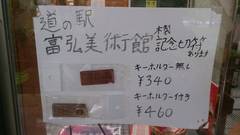 道の駅
富弘美術館
木製
記念切符
あります
キーホルダー無し
¥340
キーホルダー付き
¥460